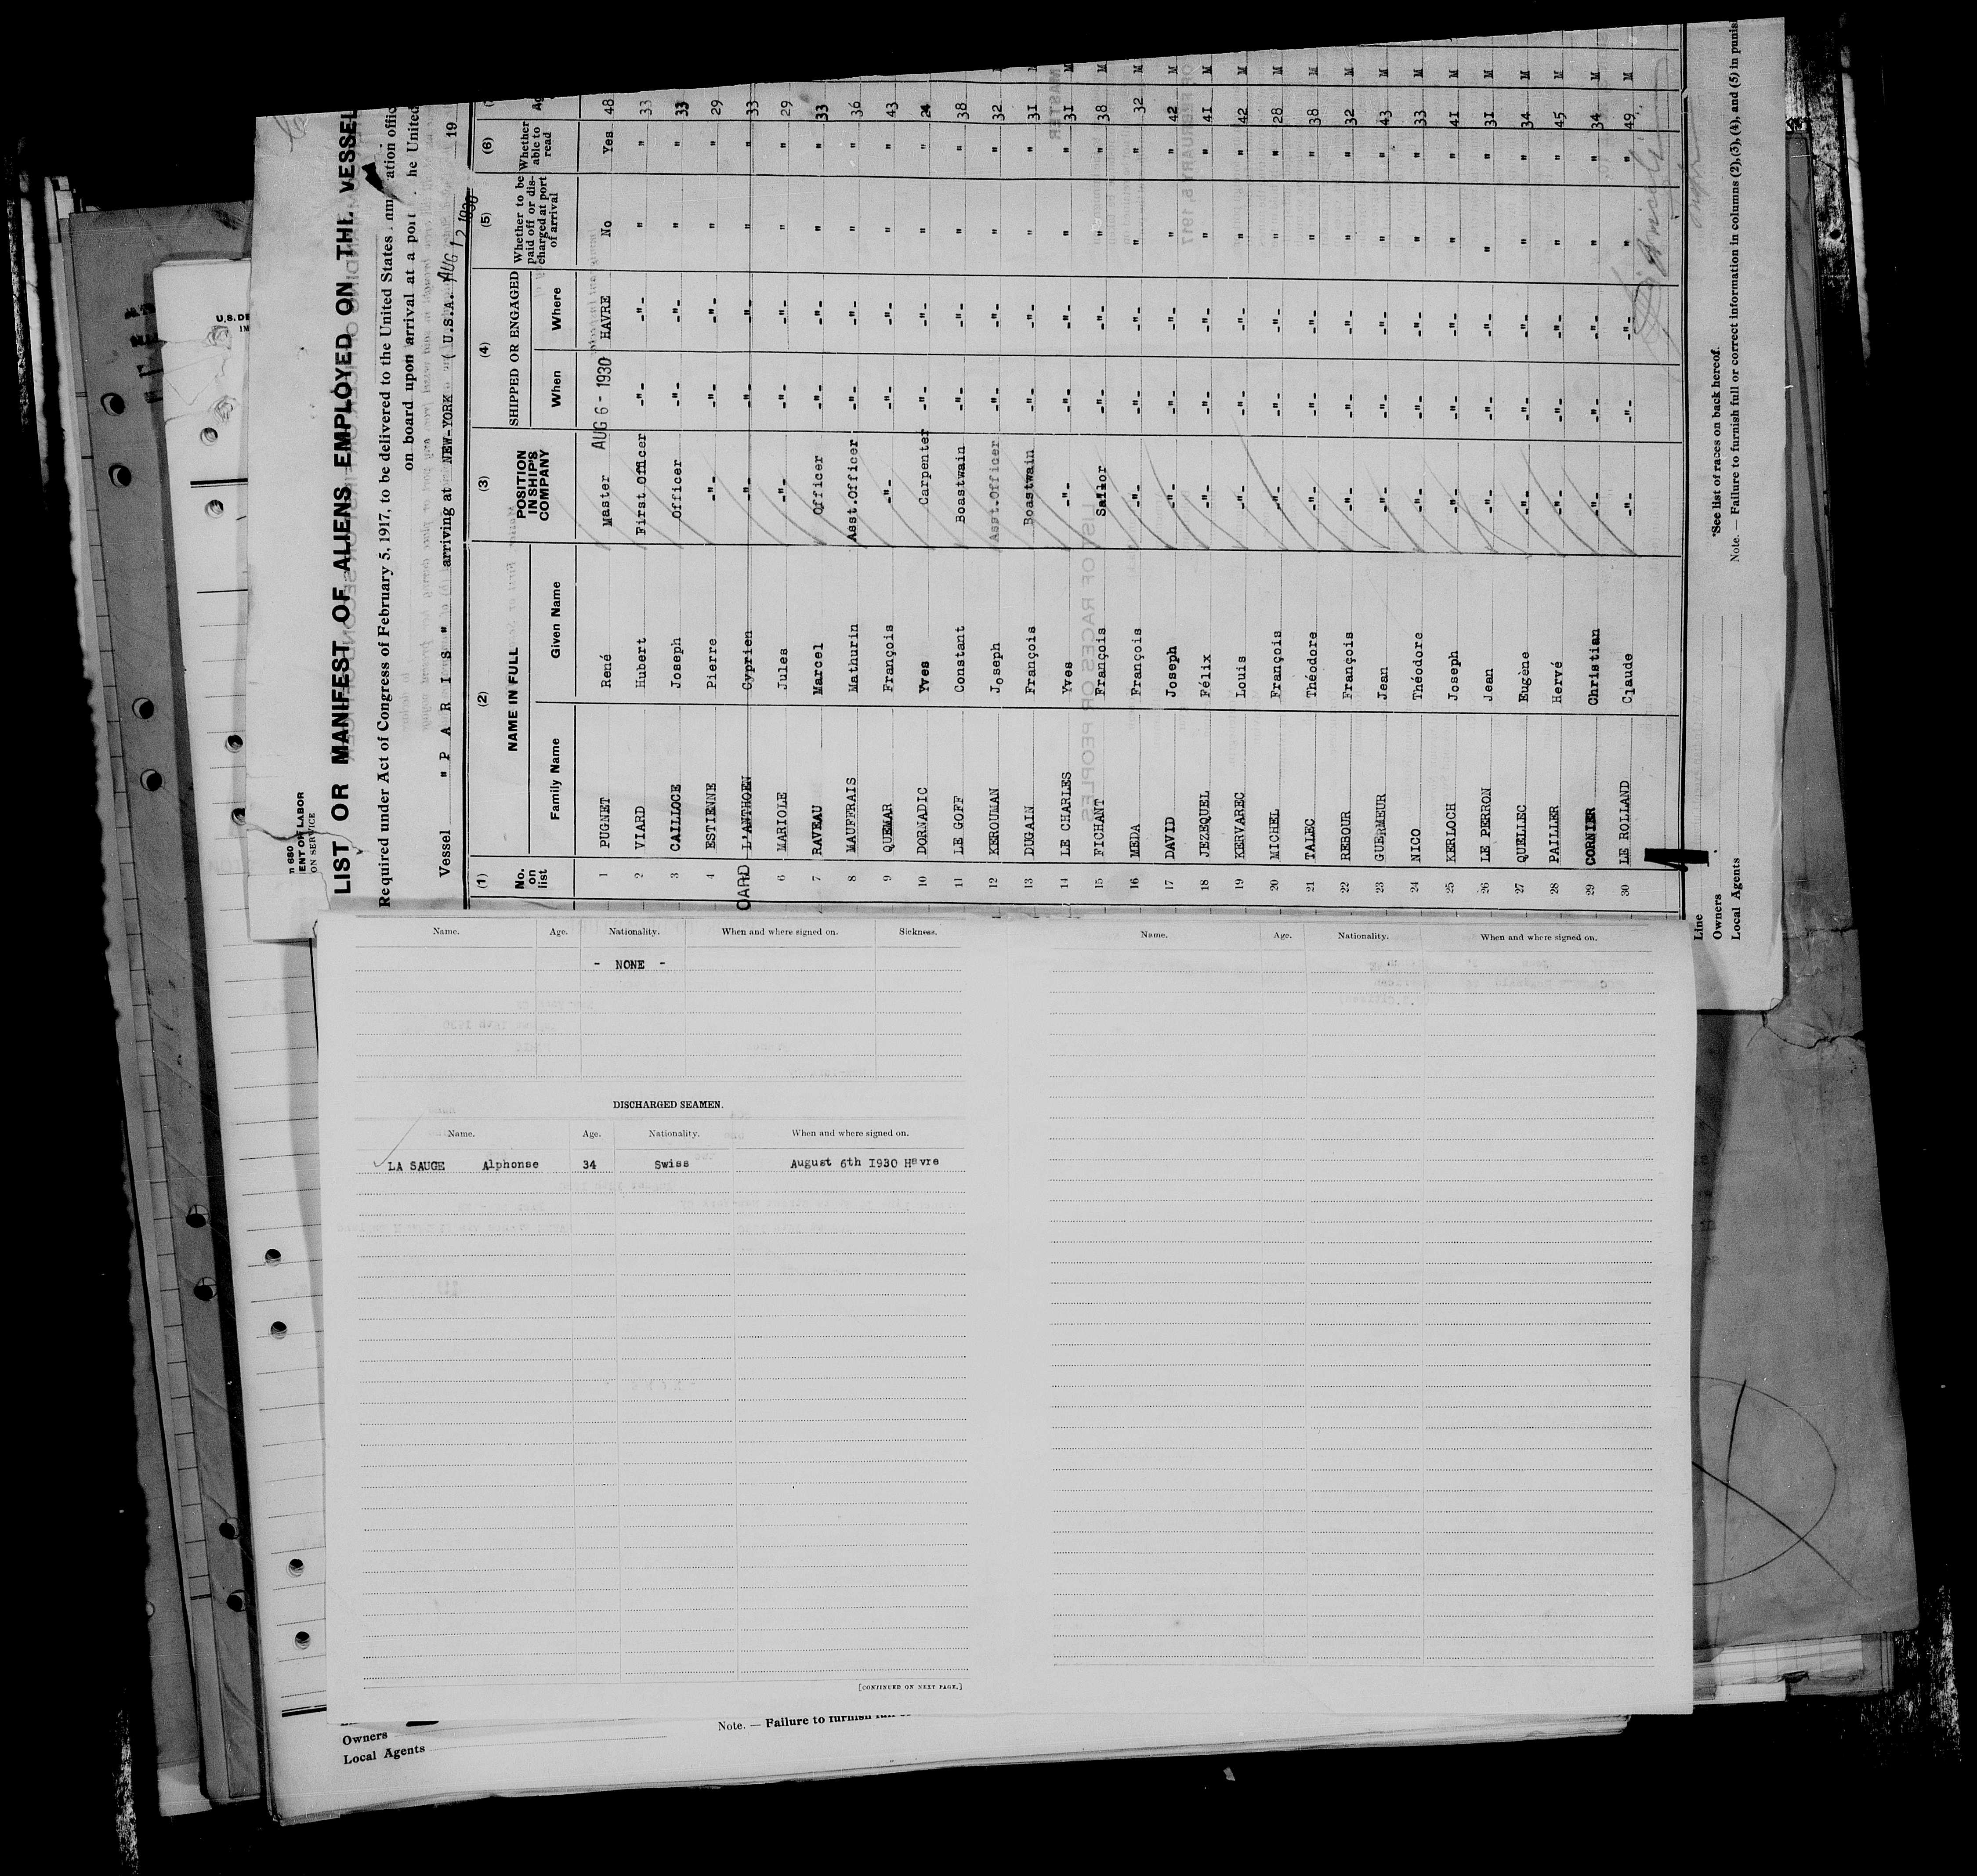 LIST OR MANIFEST OF ALIENS EMPLOYED ON THE VESSEL
Required under Act of Congress of February 5, 1917, to be delivered to the United States
on board upon arrival at a port he United
Vessel " P A R I S " arriving at NEW-YORK ( U.S.A. AUG 12 1930 19
(1) (2) (3) (4) (5) (6)
No. on list NAME IN FULL POSITION IN SHIP'S COMPANY SHIPPED OR ENGAGED Whether to be paid off or discharged at port of arrival Whether able to read
Family Name Given Name When Where
1 PUGNET René Master AUG 6 - 1930 HAVRE No Yes 48
2 VIARD Hubert First.Officer -"- -"- " " 33
3 CAILLOCE Joseph Officer -"- -"- " " 33
4 ESTIENNE Pierre -"- -"- -"- " " 29
CARD L'ANTHOEN Cyprien -"- -"- -"- " " 33
6 MARIOLE Jules -"- -"- -"- " " 29
7 RAVEAU Marcel Officer -"- -"- " " 33
8 MAUFFRAIS Mathurin Asst.Officer -"- -"- " " 36
9 QUEMAR François -"- -"- -"- " " 43
10 DORNADIC Yves Carpenter -"- -"- " " 24
11 LE GOFF Constant Boastwain -"- -"- " " 38
12 KEROUMAN Joseph Asst.Officer -"- -"- " " 32 M
13 DUGAIN François Boastwain -"- -"- " " 31 M
14 LE CHARLES Yves -"- -"- -"- " " 31 M
15 FICHANT François Sailor -"- -"- " " 38 M
16 MEDA François -"- -"- -"- " " 32 M
17 DAVID Joseph -"- -"- -"- " " 42 M
18 JEZEQUEL Félix -"- -"- -"- " " 41 M
19 KERVAREC Louis -"- -"- -"- " " 42 M
20 MICHEL François -"- -"- -"- " " 28 M
21 TALEC Théodore -"- -"- -"- " " 38 M
22 REBOUR François -"- -"- -"- " " 32 M
23 GUERMEUR Jean -"- -"- -"- " " 43 M
24 NICO Théodore -"- -"- -"- " " 33 M
25 KERLOCH Joseph -"- -"- -"- " " 41 M
26 LE PERRON Jean -"- -"- -"- " " 31 M
27 QUELLEC Eugène -"- -"- -"- " " 34 M
28 PAILLER Hervé -"- -"- -"- " " 45 M
29 CORNIER Christian -"- -"- -"- " " 34 M
30 LE ROLLAND Claude -"- -"- -"- " " 49 M
Line
Owners
Local Agents
*See list of races on back hereof.
Note. — Failure to furnish full or correct information in columns (2),(3),(4), and (5) in punis
Name. Age. Nationality. When and where signed on. Sickness.
- NONE -
DISCHARGED SEAMEN.
Name. Age. Nationality. When and where signed on.
LA SAUGE Alphonse 34 Swiss August 6th 1930 Havre
[CONTINUED ON NEXT PAGE.]
Name. Age. Nationality. When and where signed on.
Owners
Local Agents
Note. — Failure to furnish